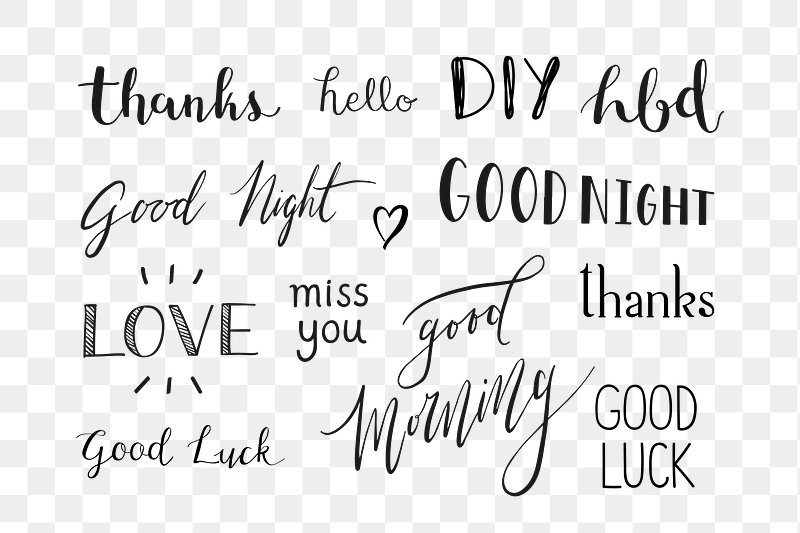 thanks hello DIY hbd
Good Night GOOD NIGHT
LOVE
miss
you
good
morning
thanks
Good Luck
GOOD
LUCK